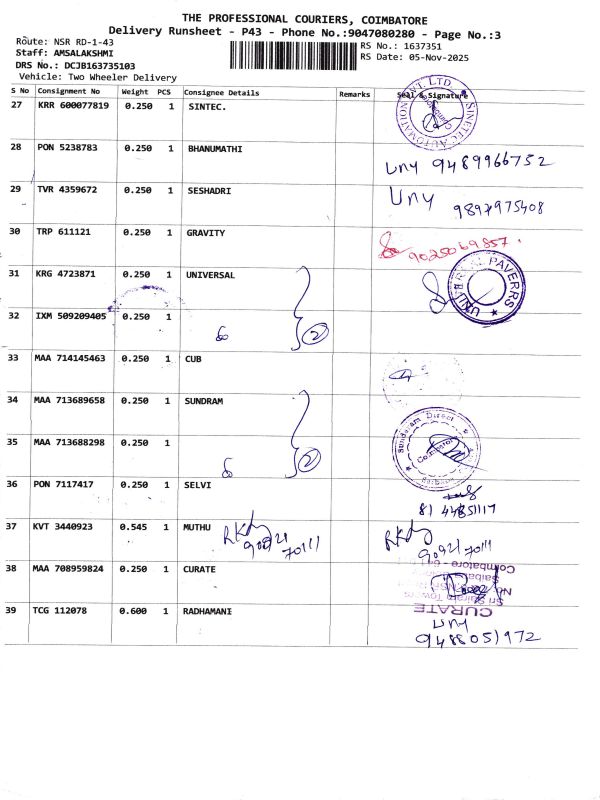 THE PROFESSIONAL COURIERS, COIMBATORE
Delivery Runsheet - P43 - Phone No.:9047080280 - Page No.:3
Route: NSR RD-1-43
Staff: AMSALAKSHMI
DRS No.: DCJB163735103
Vehicle: Two Wheeler Delivery
RS No.: 1637351
RS Date: 05-Nov-2025
S No Consignment No Weight PCS Consignee Details Remarks Seal & Signature
27 KRR 600077819 0.250 1 SINTEC.
SINETEC AUTOMATION PVT. LTD.
28 PON 5238783 0.250 1 BHANUMATHI
Uny 9489966752
29 TVR 4359672 0.250 1 SESHADRI
Uny 9897975408
30 TRP 611121 0.250 1 GRAVITY
9025069857.
31 KRG 4723871 0.250 1 UNIVERSAL
UNIVERSAL PAVERRS
32 IXM 509209405 0.250 1
2
33 MAA 714145463 0.250 1 CUB
34 MAA 713689658 0.250 1 SUNDRAM
Sundaram Direct
Coimbatore
35 MAA 713688298 0.250 1
2
36 PON 7117417 0.250 1 SELVI
81 44851117
37 KVT 3440923 0.545 1 MUTHU
9092/
70111
9092/
70111
38 MAA 708959824 0.250 1 CURATE
Coimbatore
Sri Sairam Towers
CURATE
39 TCG 112078 0.600 1 RADHAMANI
Uny
9488051972